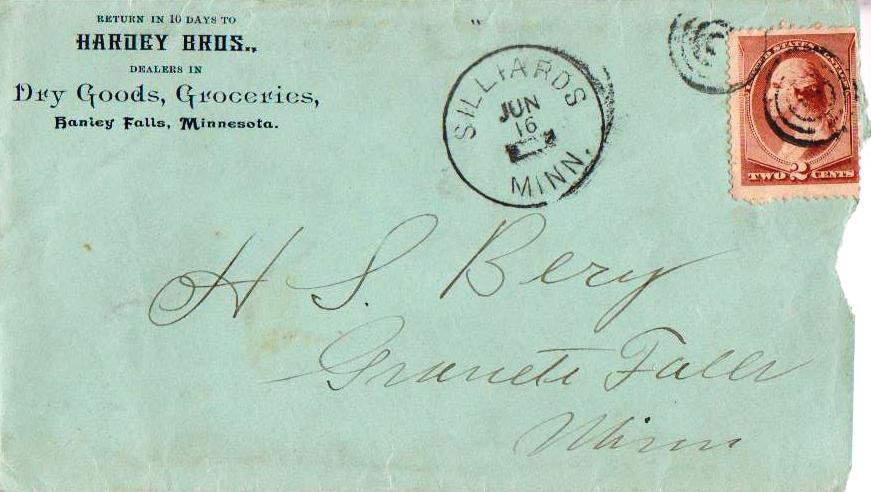 RETURN IN 10 DAYS TO
HARDEY BROS.,
DEALERS IN
Dry Goods, Groceries,
Hanley Falls, Minnesota.
SILLIARDS
JUN
16
MINN.
UNITED STATES POSTAGE
TWO 2 CENTS
H S. Bery
Granete Falls
Minn